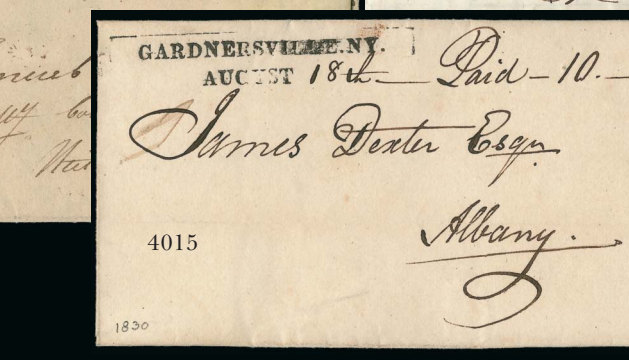 GARDNERSVILLE.NY.
AUGUST 18th Paid - 10. -
James Dexter Esqr
Albany.
4015
1830